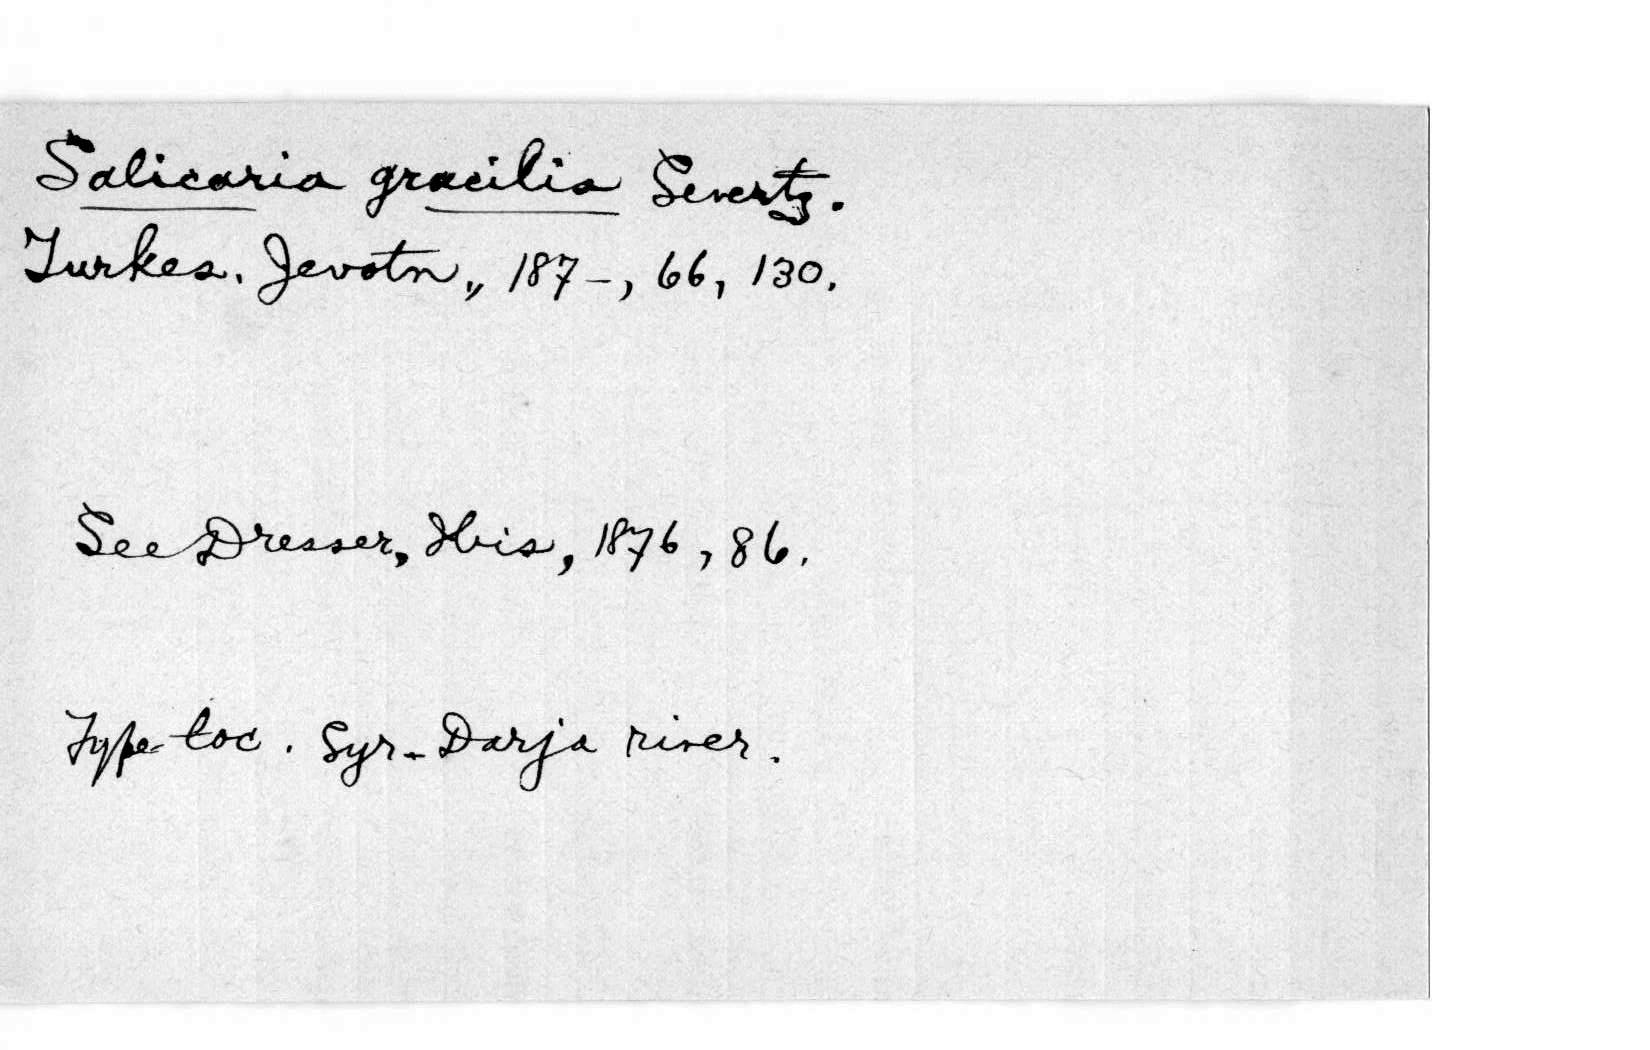 Salicaria gracilis Severtz.
Turkes. Jevotn., 187-, 66, 130.
See Dresser, Ibis, 1876, 86.
Type loc. Syr-Darja river.